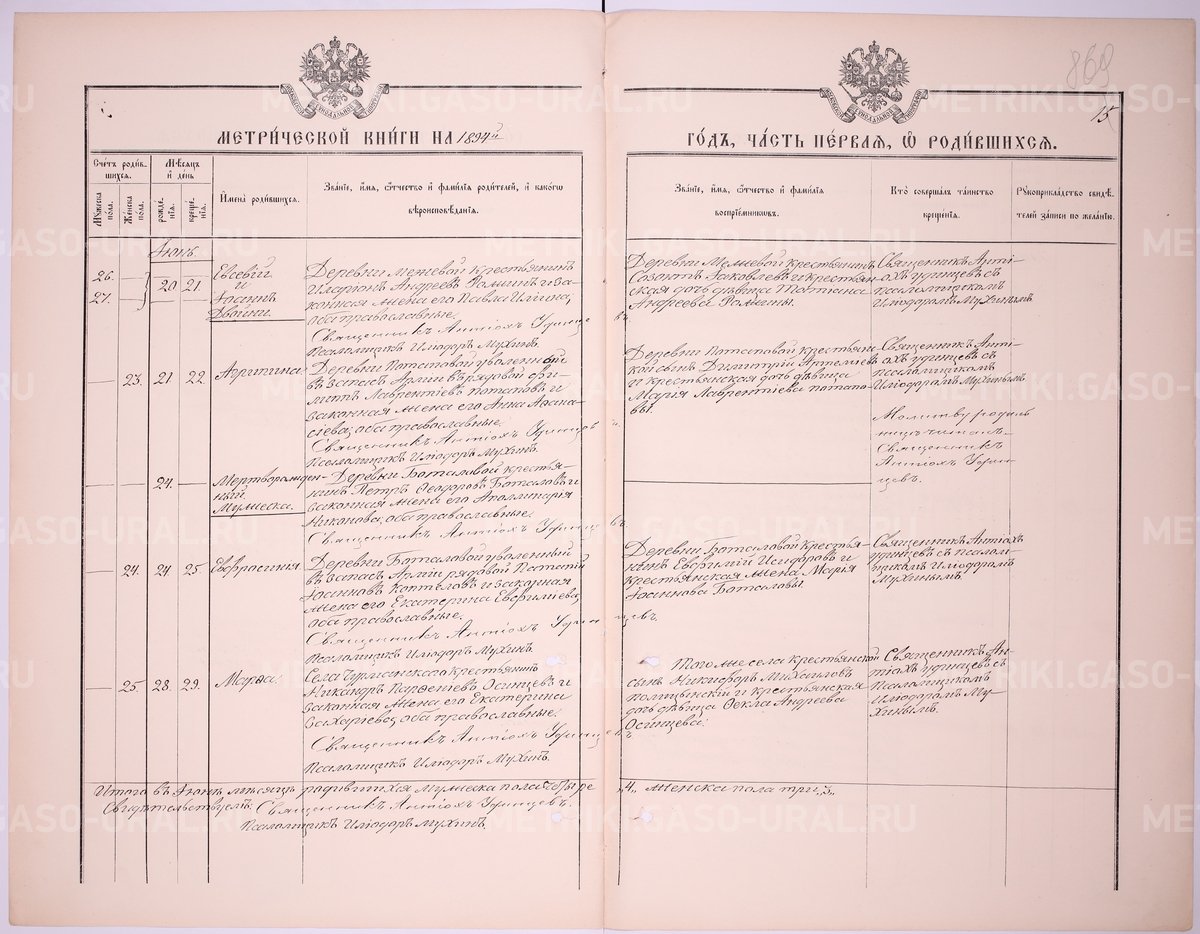 869
15
МЕТРИ́ЧЕСКОЙ КНИ́ГИ НА 1894й
ГО́ДЪ, ЧА́СТЬ ПЕ́РВАѦ, Ѡ РОДИ́ВШИХСѦ.
Сче́тъ роди́в-
шихсѧ.
Мꙋ́жеска по́ла.
Же́нска по́ла.
Мѣ́сѧцъ и де́нь
рожде́нїѧ.
креще́нїѧ.
И҆мена̀ роди́вшихсѧ.
Зва́нїе, и҆́мѧ, ѻ҆́тчество и҆ фами́лїѧ роди́телей, и҆ како́гѡ
вѣроисповѣ́данїѧ.
Зва́нїе, и҆́мѧ, ѻ҆́тчество и҆ фами́лїѧ
воспрїе́мниковъ.
Кто̀ соверша́лъ та́инство
креще́нїѧ.
Рꙋкоприкла́дство свидѣ́-
телей за́писи по жела́нїю.
Іюнь.
26.
27.
20
21.
Евсевій
и
Іоаннъ
Двойни.
Деревни Межевой крестьянинъ
Иларіонъ Андреевъ Ѳоминъ и за-
конная жена его Павла Ильина,
оба православные.
Священникъ Антіохъ Удинцевъ.
Псаломщикъ Иліодоръ Мухинъ.
Деревни Межевой крестьянинъ
Созонтъ Іаковлевъ и крестьян-
ская дочь дѣвица Татіана
Андреева Ѳомины.
Священникъ Анті-
охъ Удинцевъ съ
псаломщикомъ
Иліодоромъ Мухинымъ.
23.
21
22.
Агриппина
Деревни Потаповой уволенный
въ запасъ Арміи рядовой Фи-
липпъ Лаврентіевъ Потаповъ и
законная жена его Анна Аѳана-
сіева, оба православные.
Священникъ Антіохъ Удинцевъ
Псаломщикъ Иліодоръ Мухинъ.
Деревни Потаповой крестьян-
кой сынъ Димитрій Артеміевъ
и крестьянская дочь дѣвица
Марія Лаврентіева Потапо-
вы.
Священникъ Анті-
охъ Удинцевъ съ
псаломщикомъ
Иліодоромъ Мухинымъ
24.
Мертворожден-
ный
Мужеска.
Деревни Боталовой крестья-
нинъ Петръ Ѳеодоровъ Боталовъ и
законная жена его Аполлинарія
Никонова, оба православные.
Священникъ Антіохъ Удинцевъ.
Молитву родиль-
ницѣ читалъ
Священникъ
Антіохъ Удин-
цевъ.
24.
24.
25.
Евфросинія
Деревни Боталовой уволенный
въ запасъ Арміи рядовой
Іоанновъ Коптеловъ и законная
жена его Екатерина Евфиміева,
оба православные.
Священникъ Антіохъ Удинцевъ.
Псаломщикъ Иліодоръ Мухинъ.
Деревни Боталовой крестья-
нинъ Евфимій Исидоровъ и
крестьянская жена Марія
Іоаннова Боталовы.
Священникъ Антіохъ
Удинцевъ съ псалом-
щикомъ Иліодоромъ
Мухинымъ.
25.
28.
29.
Марѳа.
Села крестьянинъ
Никандръ Парѳеніевъ Осинцевъ и
законная жена его Екатерина
Захаріева, оба православные.
Священникъ Антіохъ Удинцевъ.
Псаломщикъ Иліодоръ Мухинъ.
Того же села крестьянской
сынъ Никифоръ Михаиловъ
и крестьянская
дочь дѣвица Ѳекла Андреева
Осинцева.
Священникъ Ан-
тіохъ Удинцевъ съ
Псаломщикомъ
Иліодоромъ Му-
хинымъ.
Итого въ Іюнѣ мѣсяцѣ родившихся мужеска пола четыре 4, женска пола три, 3.
Свидѣтельствуемъ: Священникъ Антіохъ Удинцевъ.
Псаломщикъ Иліодоръ Мухинъ.
METRIKI.GASO-URAL.RU